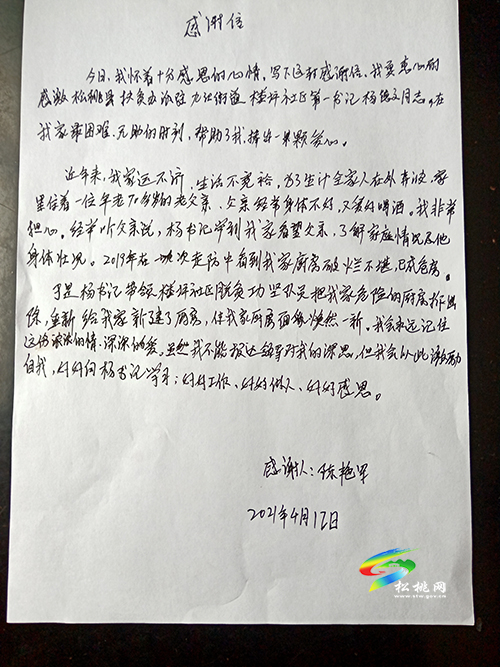 感谢信
今日,我怀着十分感恩的心情,写下这封感谢信,我要衷心的
感激松桃县扶贫办派驻九江街道楼坪社区第一书记杨德文同志,在
我家最困难、无助的时刻,帮助了我,捧出一颗爱心。
近年来,我家运不济,生活不宽裕,为了生计全家人在外奔波,家
里住着一位年老70多岁的老父亲、父亲经常身体不好,又爱好喝酒。我非常
担心。经常听父亲说,杨书记学到我家看望父亲,了解家庭情况及他
身体状况。2019年在一次走访中看到我家厨房破烂不堪,已成危房。
于是杨书记带领楼坪社区脱贫攻坚队员把我家危险的厨房拆
除,重新给我家新建了厨房,使我家厨房面貌焕然一新。我会永远记住
这份深深的情、深深的爱。虽然我不能报达领导对我的深恩,但我会以此激励
自我,好好向杨书记学习:好好工作、好好做人、好好感恩。
感谢人:陈艳军
2021年4月12日
松桃网
www.stw.gov.cn